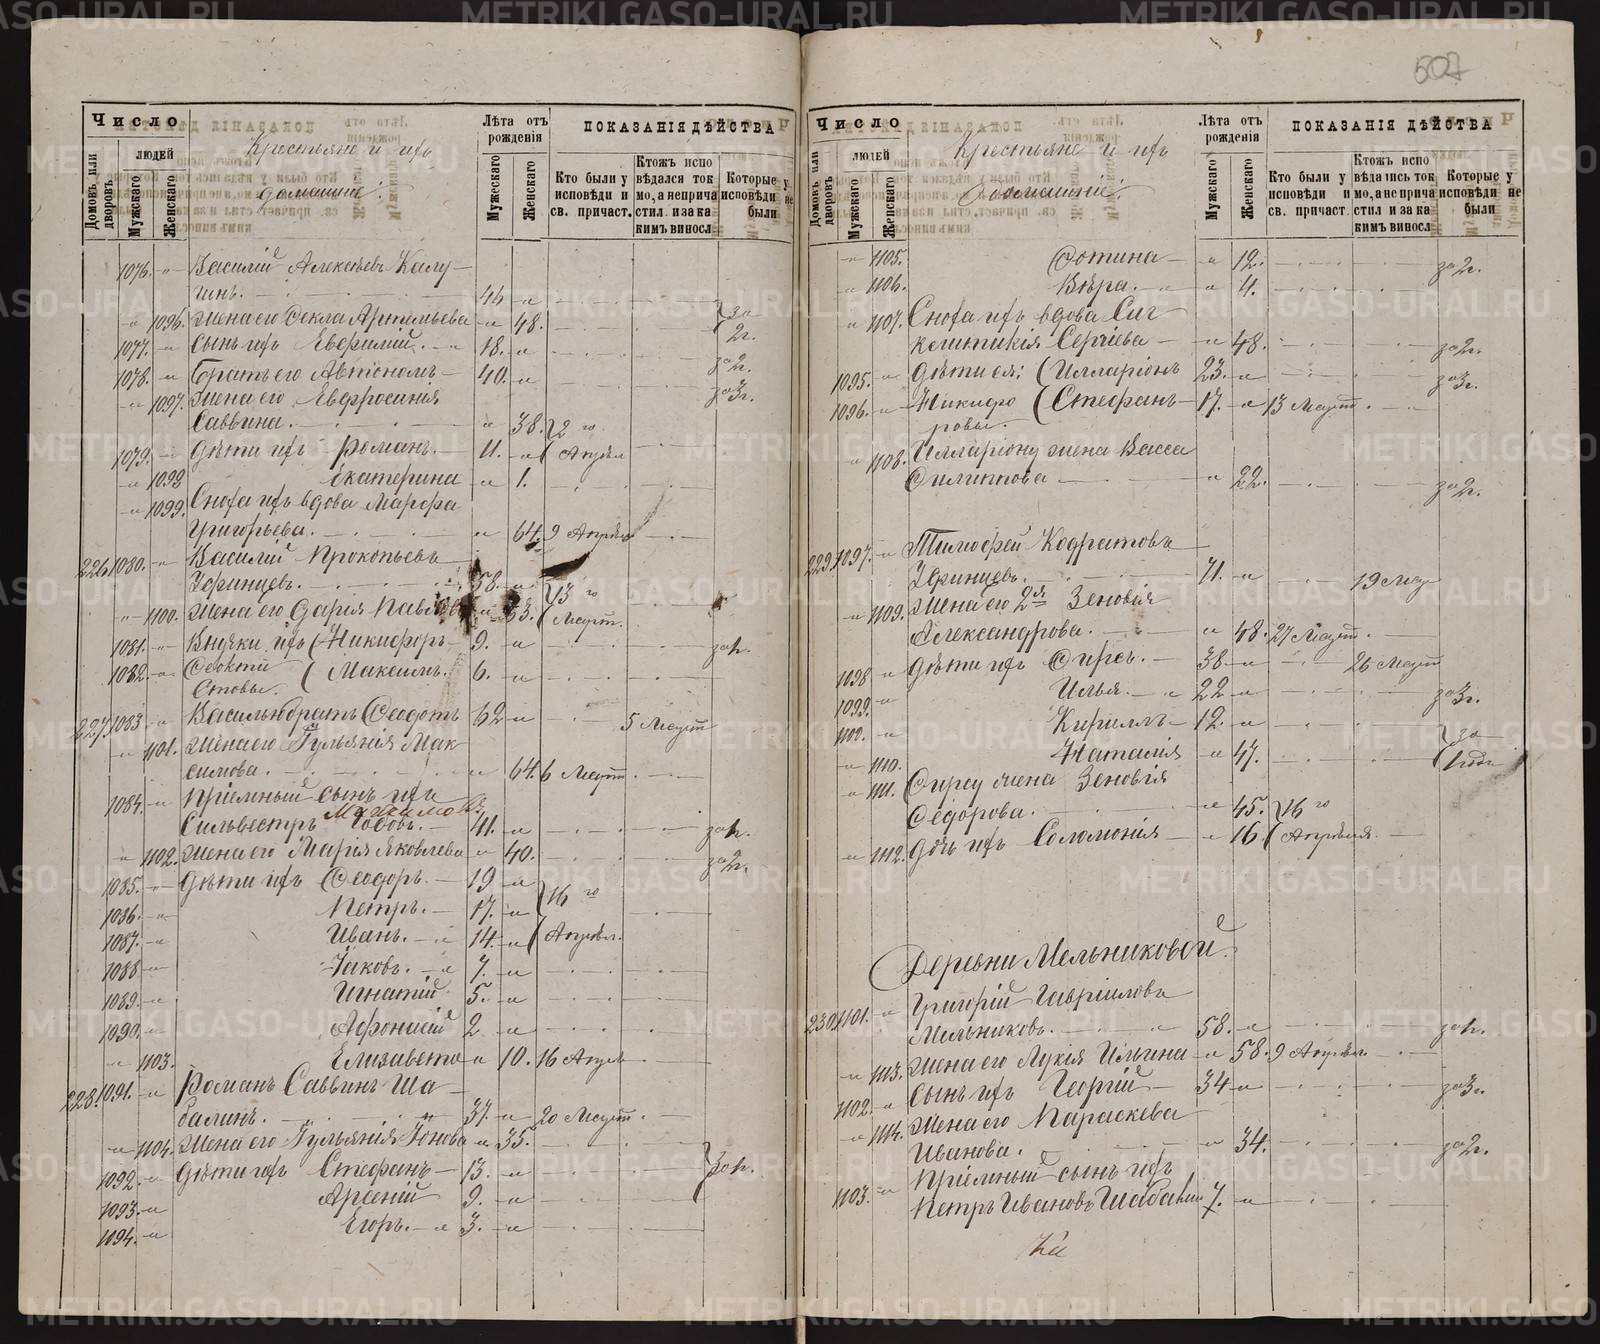 507
Число
Лѣта отъ рожденія
ПОКАЗАНІЯ ДѢЙСТВА
Домовъ или дворовъ
людей
Мужскаго
Женскаго
Крестьяне и ихъ
домашніе:
Мужескаго
Женскаго
Кто были у исповѣди и св. причаст.
Ктожъ испо вѣдался ток мо, а неприча стил. и за ка кимъ виносл
Которые у исповѣди не были
1076. Василій Алексѣевъ Калу-
гинъ. 44
1096. Жена его Ѳекла Артемьева 48. за 2г.
1077. Сынъ ихъ Евфимій. 18.
1078. Братъ его Автономъ 40. за 2г.
1097. Жена его Евфросинія за 3г.
Саввина. 38. 2го
1079. Дѣти ихъ Романъ. 11. Апрѣл
1098 Екатерина 1.
1099. Сноха ихъ вдова Марѳа
Григорьева. 64. 9 Апрѣл
226. 1080. Василій Прокопьевъ
58. 13го
1100. Жена его Дарія 53. Март.
1081. Внучки ихъ Никифоръ 9. за 1г.
1082. Ѳеокти Максимъ. 6.
стовы.
227. 1083 Васильюбратъ Ѳеодотъ 62 5 Март
1101. Жена его Іульянія Мак
симова. 64. 6 Март.
1084. Пріемный сынъ ихъ
Сильвестръ 41. за 1г.
1102. Жена его Марія Яковлева 40. за 2г.
1085. Дѣти ихъ Ѳеодоръ. 19
1086. Петръ. 17. 16го
1087. Иванъ. 14. Апрѣл.
1088 Іаковъ. 7.
1089. Игнатій 5.
1090. Аѳонасій 2
1103. Елизавета 10. 16 Апрѣл
228. 1091. Романъ Саввинъ Ша-
балинъ. 37. 20 Март.
1104. Жена его Іульянія Іонова 35.
1092. Дѣти ихъ Стефанъ 13. за 1г.
1093. Арсеній 9.
1094. Егоръ. 3.
Число
Лѣта отъ рожденія
ПОКАЗАНІЯ ДѢЙСТВА
Домовъ или дворовъ
людей
Мужскаго
Женскаго
Крестьяне и ихъ
домашніе:
Мужскаго
Женскаго
Кто были у исповѣди и св. причаст.
Ктожъ испо вѣдались ток мо, а не прича стил и за ка кимъ виносл
Которые у исповѣди не были
1105. Ѳотина 12. за 2г.
1106. Вѣра. 4.
1107. Сноха ихъ вдова Син
клитикія Сергіева 48. за 2г.
1095. Дѣти ея: Илларіонъ 23. за 3г.
1096. Никифо Стефанъ 17. 13 Март.
ровы.
1108. Илларіону жена Васса
Филиппова 22. за 2г.
229. 1097. Тимофей Кодратовъ
71. 19 Мар
1109. Жена его 2я Зеновія
Александрова. 48. 27 Март.
1098 Дѣти ихъ Фирсъ. 38 26 Март
1099. Илья. 22 за 3г.
1100. Кириллъ 12. за
1110. Наталія 47. 1 годъ
1111. Фирсу жена Зеновія
Ѳедорова. 45. 16го
1112. Дочь ихъ Соломонія 16. Апрѣля.
Деревни Мельниковой.
230. 1101. Григорій Гавріиловъ
Мельниковъ. 58. за 1г.
1113. Жена его Лукія Ильина 58. 9 Апрѣл.
1102. Сынъ ихъ Георгій 34 за 3г.
1114. Жена его Параскева
Иванова. 34. за 2г.
Пріемный сынъ ихъ
1103. Петръ Ивановъ Шабалин 7.
METRIKI.GASO-URAL.RU